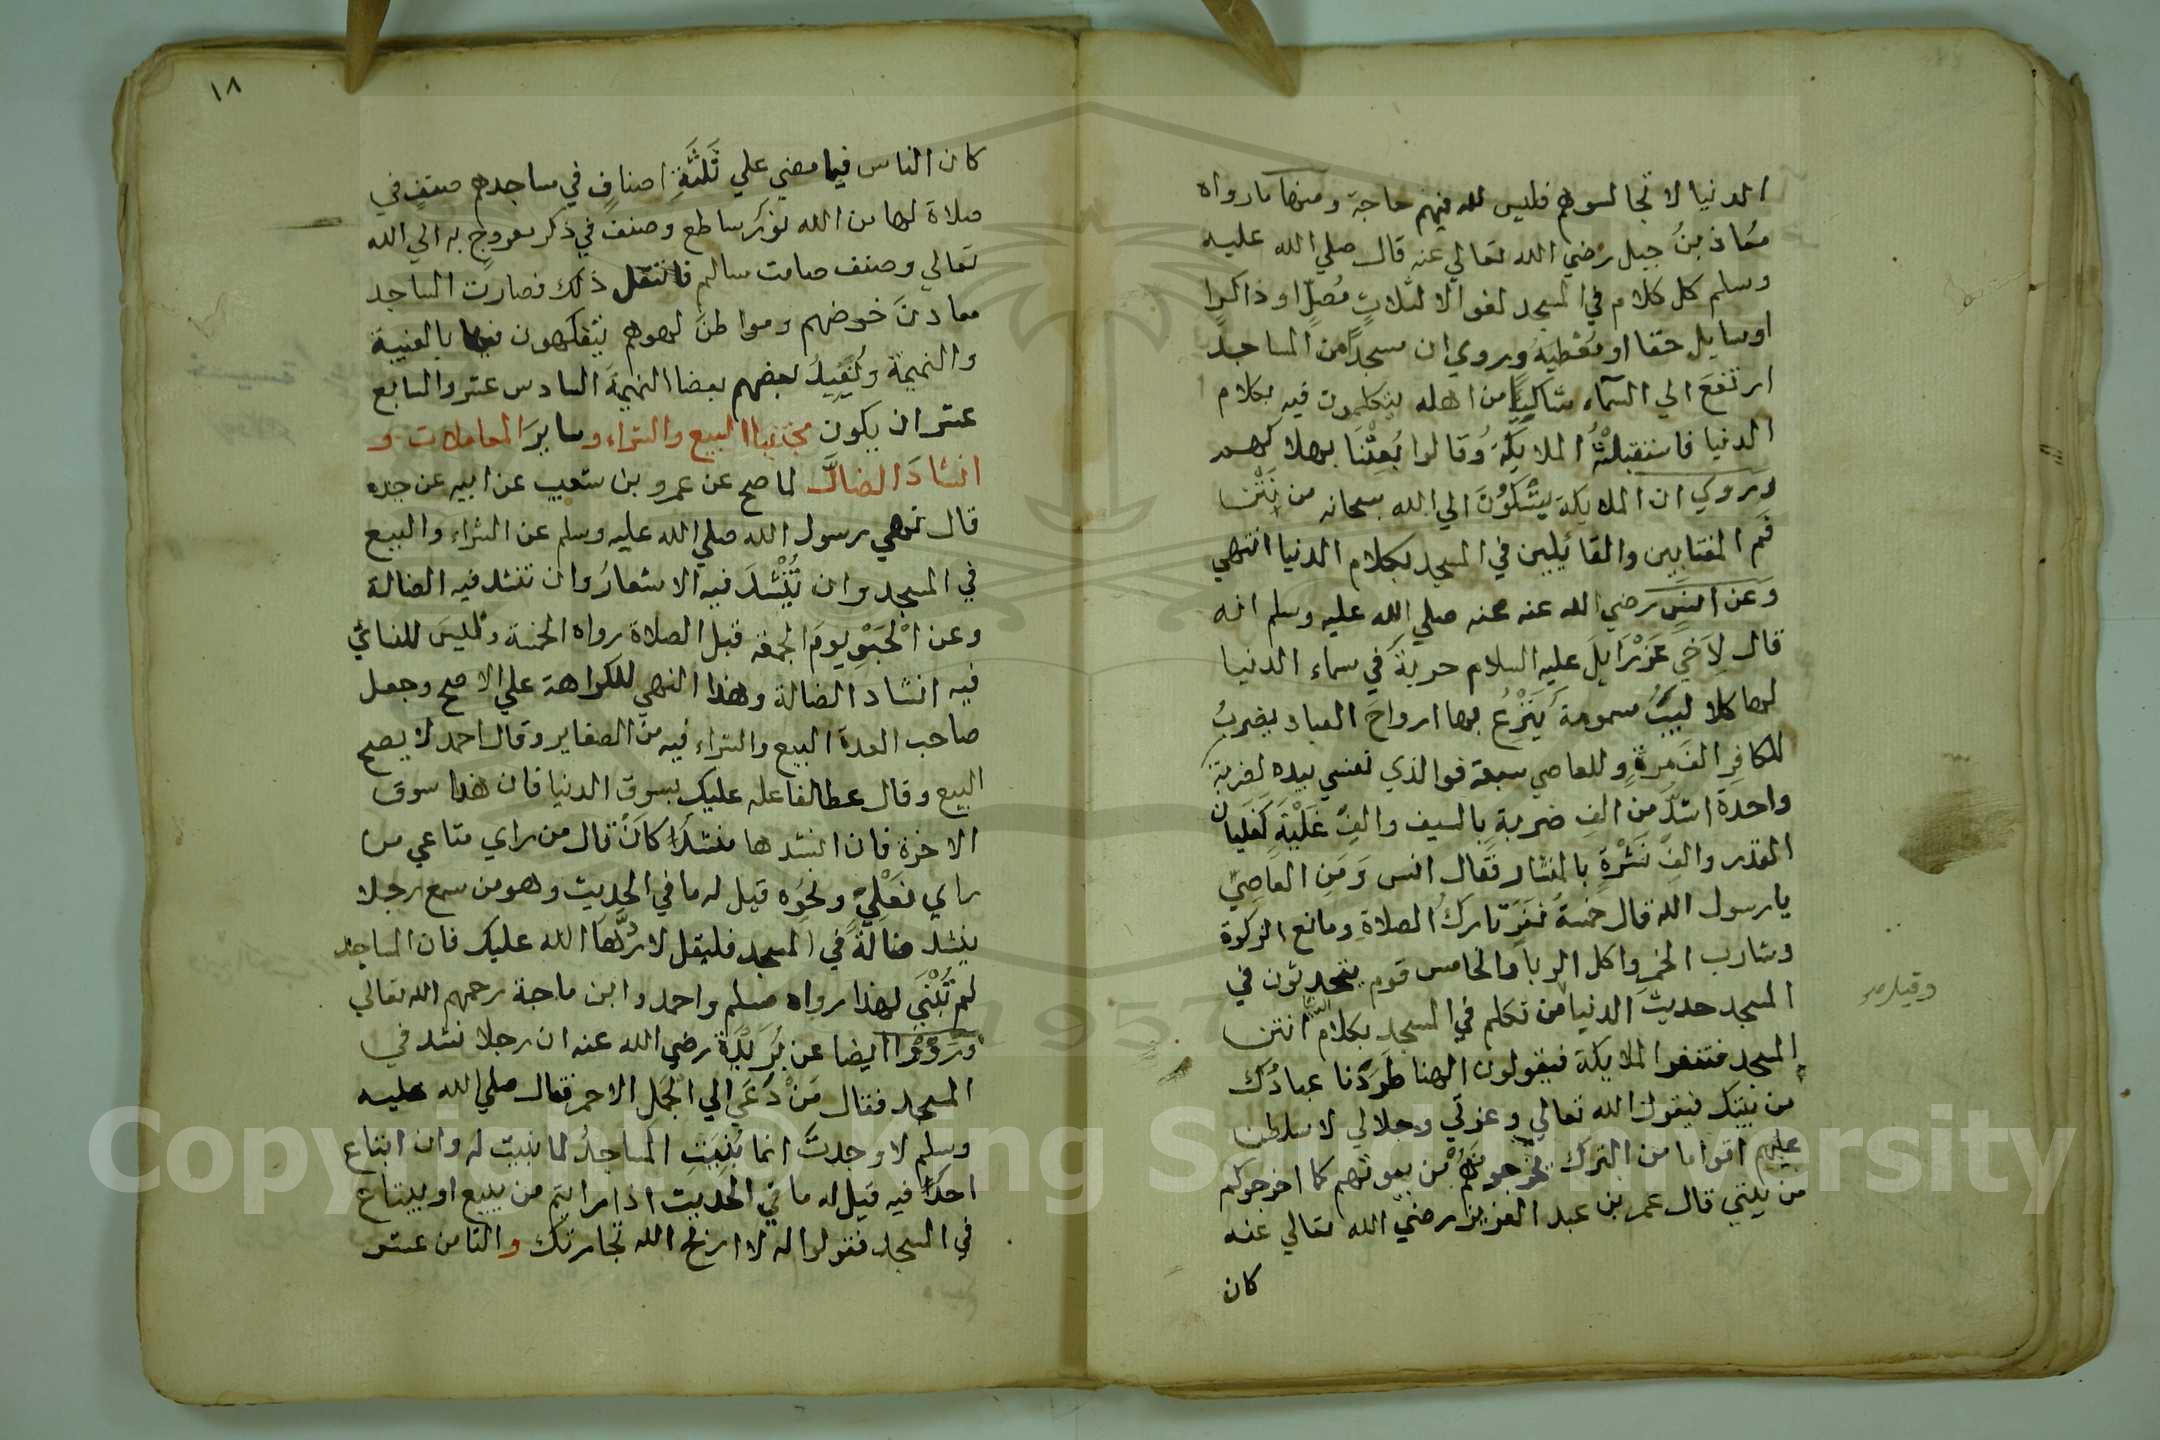 الدنيا لا تجالسوهم فليس لله فيهم حاجة ومنها ما رواه
معاذ بنُ جبل رضي الله تعالي عنه قال صلي الله عليه
وسلم كل كلام في المسجد لغو الا لثلاثٍ مُصلٍّ او ذاكرا
او سايل حقا او مُعْطيَهُ وروي ان مسجدًا من المساجد
ارتفعَ الي السماء شاكيًا من اهله يتكلمون فيه بكلام
الدنيا فاستقبلتْهُ الملايكةُ وقالوا بُعِثْنَا بهلاكهم
ورَوي ان الملايكة يَشْكُوْنَ الي الله سبحانه من نَتَنِ
فَم المغتابين والقائلين في المسجد بكلام الدنيا انتهي
وعن انسٍ رضي الله عنه عنه صلي الله عليه وسلم انه
قال لِاَخي عَزْرَايِلَ عليه السلام حربة في سماء الدنيا
لها كلاليبُ مسمومة يَنْزِعُ بها ارواحَ العباد يضربُ
للكافرِ الفَ مرةٍ وللعاصي سبعة فوالذي نفسي بيده لضربة
واحدة اشدُّ من الفِ ضربةٍ بالسيف والفِ غَلْيَةٍ كَغَلَيان
القدر والفِ نَشْرَةٍ بالمنشار فقال انس وَمَنِ العَاصِي
يا رسول الله قال خمسةُ نفَرٍ تاركُ الصلاةِ ومانع الزكوة
وشارب الخمرِ واكل الربا والخامس قوم يتحدثون في
المسجد حديثَ الدنيا من تكلم في المسجد بكلام الدنيا انتن
المسجد فتنفوا الملايكة فيقولون الهنا طَرَدَنا عبادُك
من بيتك فيقول الله تعالي وعزتي وجلالي لاسلطن
عليهم اقواما من الترك يخرجونهم من بيوتهم كما اخرجوكم
من بيتي قال عمر بن عبد العزيز رضي الله تعالي عنه
كان
وقيل
١٨
كان الناس فيما مضي علي ثَلثَةِ اصنافٍ في مساجدهم صنفٍ في
صلاة لها من الله نوْرٌ ساطع وصنف في ذكر معروجٍ به الي الله
تعالي وصنف صامت سالم فانتقل ذلك فصارت المساجد
معادنَ خوضهم ومواطنَ لهوهم يتفكهون فيها بالغيبة
والنميمة ويُفيدُ بعضهم بعضا النهيمَةَ السادس عشر والسابع
عشر ان يكون مجتنبا البيع والشراء وسايرَ المعاملات و
انشادَ الضالَّة لما صح عن عمرو بن شعيب عن ابيه عن جده
قال نهي رسول الله صلي الله عليه وسلم عن الشراء والبيع
في المسجد وان يُنْشَدَ فيه الاشعارُ وان تنشد فيه الضالة
وعن الْحَبْوِ يومَ الجمعة قبل الصلاة رواه الخمسة وليسَ للنسائي
فيه انشاد الضالة وهذا النهي للكراهة علي الاصح وجعل
صاحب العدة البيع والشراء فيه من الصغاير وقال احمد لا يصح
البيع وقال عطا لفاعله عليك بسوق الدنيا فان هذا سوق
الاخرة فان انشدها منشدًا كَانَّ قال من راي متاعي من
راي نعلِيْ ونحوُه قيل له ما في الحديث وهو من سمع رجلا
ينشد ضالةً في المسجد فليقل لا ردَّها الله عليك فان المساجد
لم تُبْنَي لهذا رواه مسلم واحمد وابن ماجة رحمهم الله تعالي
ورَوَوْا ايضا عن بُرَيْدَة رضي الله عنه ان رجلا نشد في
المسجد فقال مَنْ دَعَي الي الجمل الاحمر فقال صلي الله عليه
وسلم لا وجدتَ انما بُنِيَتِ المساجدُ لما بنيت له وان ابتاع
احدٌ فيه قيل له ما في الحديث اذا رايتم من يبيع او يبتاع
في المسجد فقولوا له لا اربح الله تجارتك والثامن عشر
Copyright © King Saud University
1957